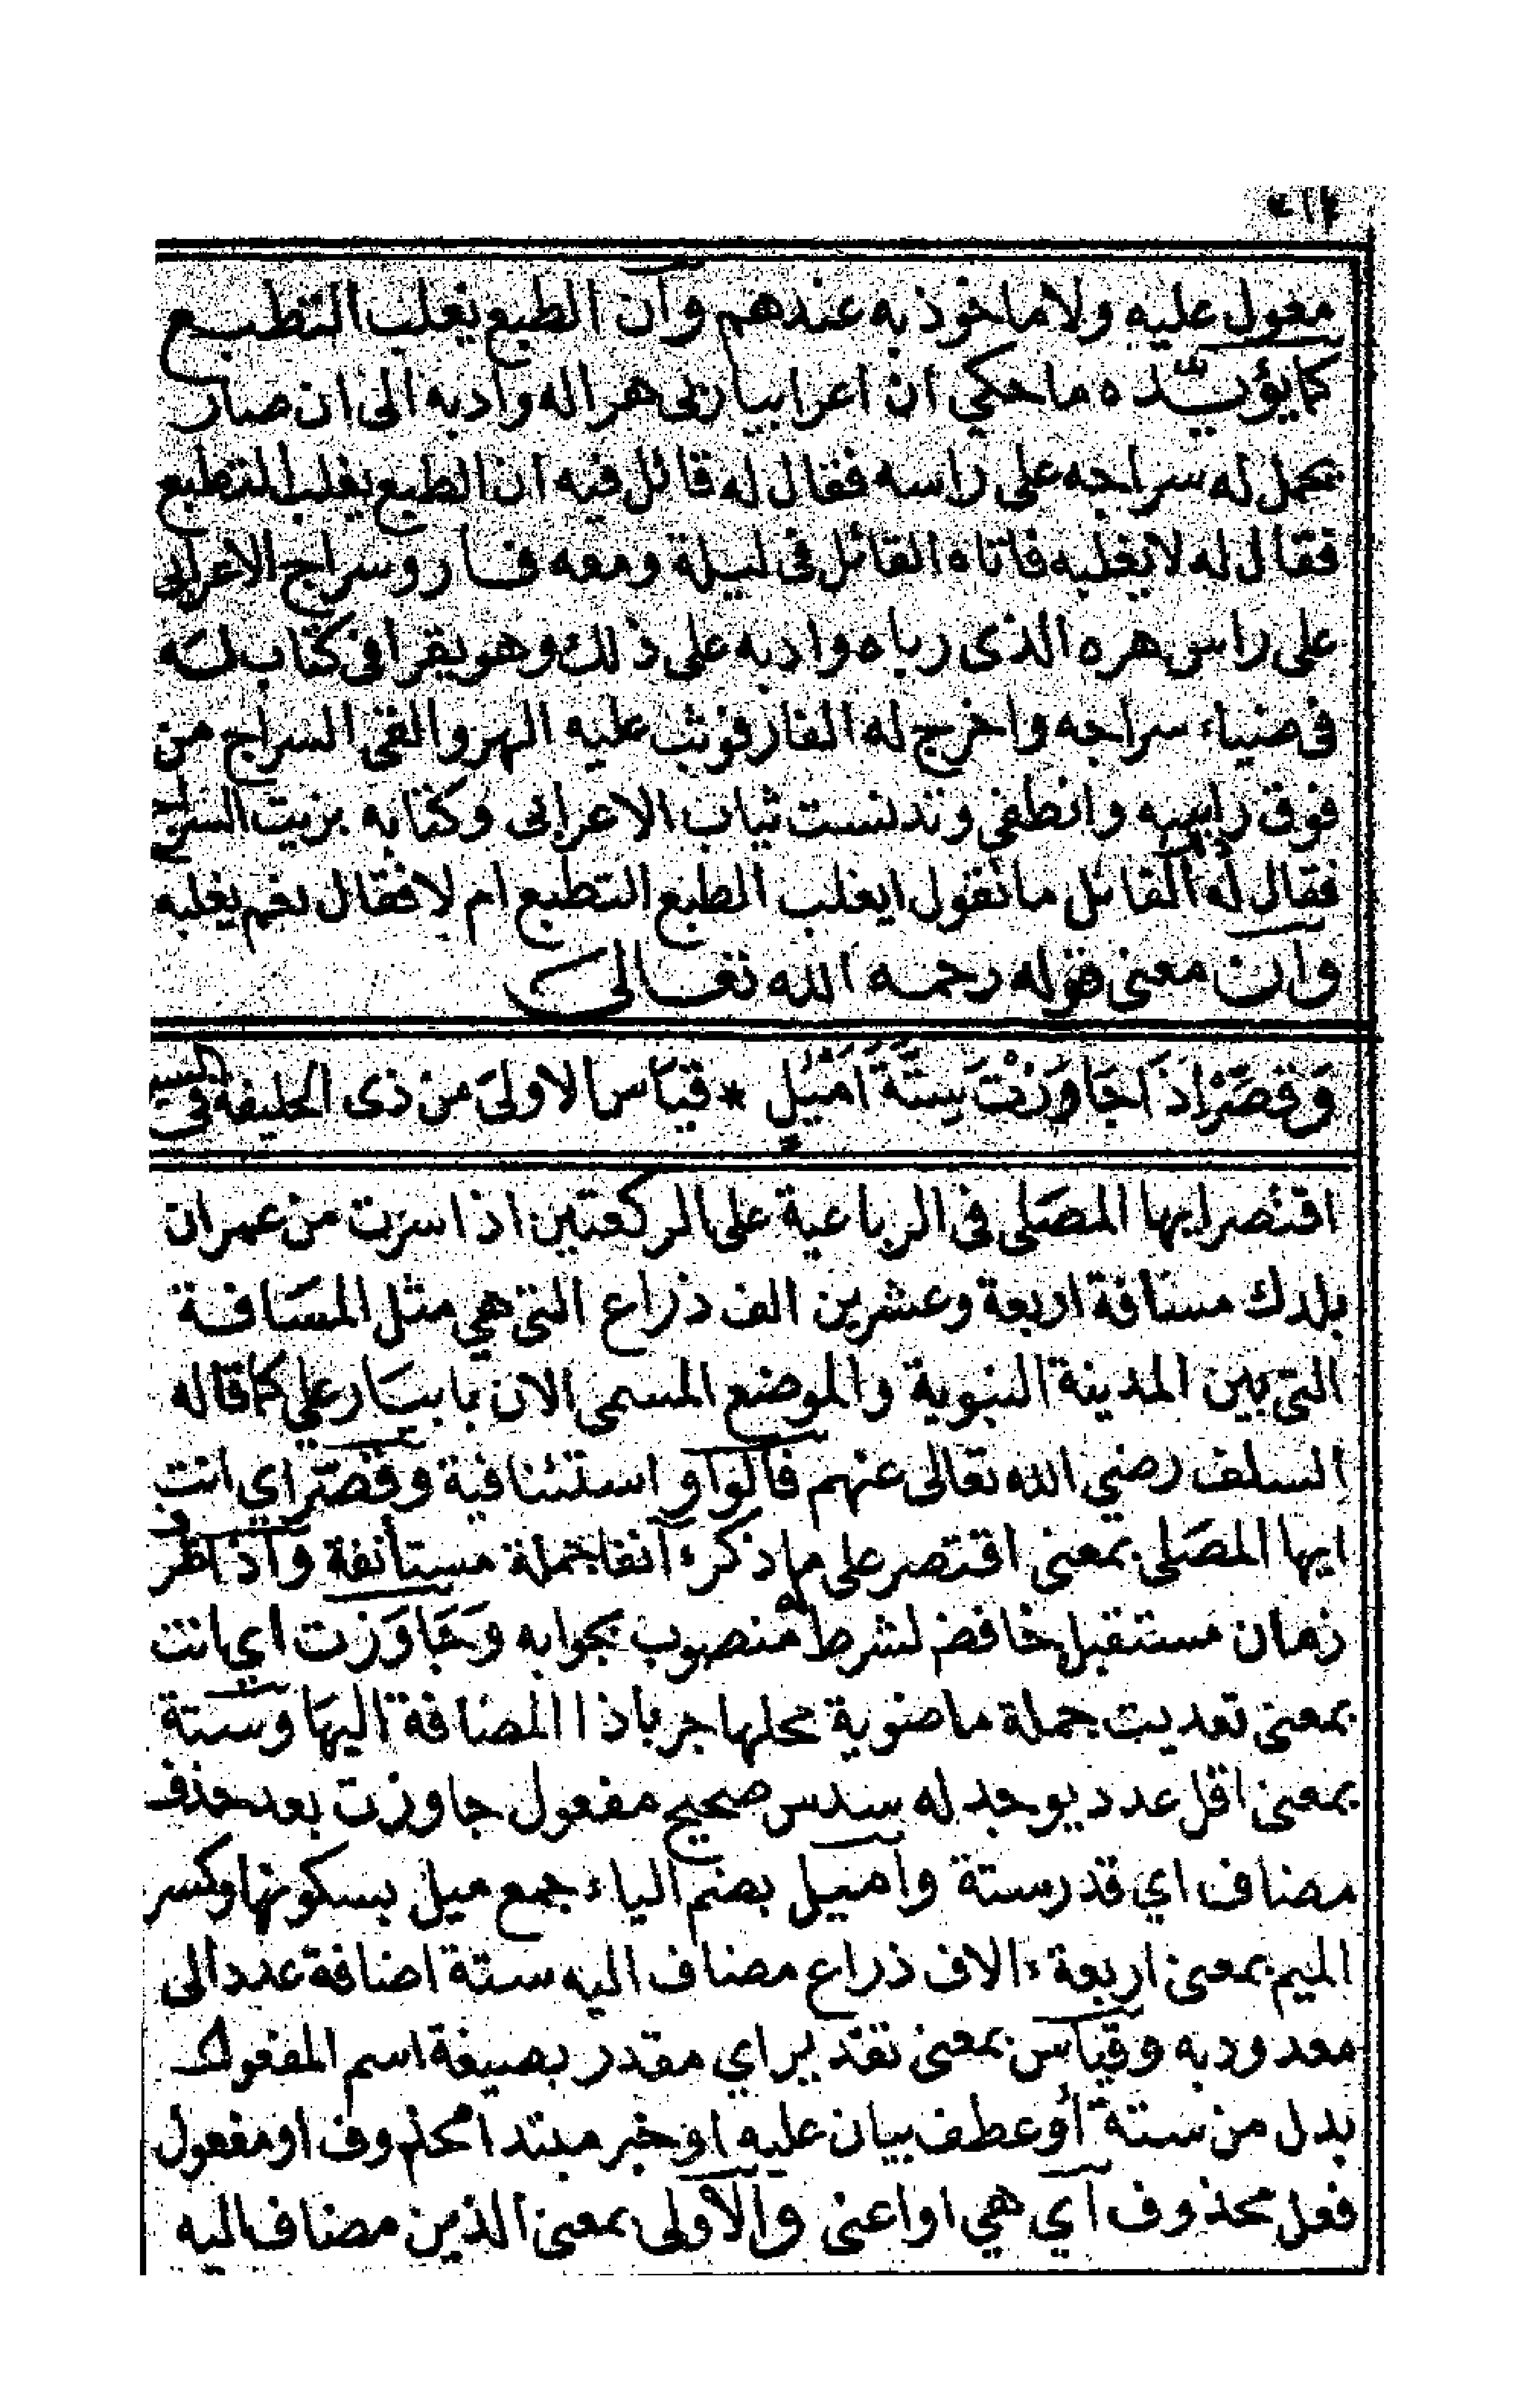 معول عليه ولا ماخوذ به عندهم وان الطبع يغلب التطبع
كما يؤيده ما حكي ان اعرابيا ربى هرا له وادبه الى ان صار
يحمل له سراجه على راسه فقال له قائل فيه ان الطبع يغلب التطبع
فقال له لا يغلبه فاتاه القائل في ليلة ومعه فار وسراج الاعرابي
على راس هره الذى رباه وادبه على ذلك وهو يقرا في كتاب له
في ضياء سراجه واخرج له الفار فوثب عليه الهر والقى السراج من
فوق راسه وانطفى وتدنست ثياب الاعرابى وكتابه بزيت السراج
فقال له القائل ما تقول ايغلب الطبع التطبع ام لا فقال نعم يغلبه
وان معنى قوله رحمه الله تعالى
وَقَصِّرْ اِذَا جَاوَزْتَ سِتَّةَ اَمْيُلٍ * قيَاس الاولىَ من ذى الحليفة في السير
اقتصر ايها المصَلى في الرباعية على الركعتين اذا سرت من عمران
بلدك مسَافة اربعة وعشرين الف ذراع التى هي مثل المسَافة
التى بين المدينة النبوية والموضع المسمى الان بابيَار علي كما قاله
السلف رضي الله تعالى عنهم فالواو استئنافية وقصّر اي انت
ايها المصَلى بمعنى اقتصر على ما ذكرء آنفا جملة مستأنفة واذا ظرف
زمان مستقبل خافض لشرطه منصوب بجوابه وَجَاوَزت اي انت
بمعنى تعديت جملة ماضوية محلها جر باذا المضافة اليهَا وستة
بمعنى اقل عدد يوجد له سدس صحيح مفعول جاوزت بعد حذف
مضاف اي قدر ستة واميل بضم الياء جمع ميل بسكونها وكسر
الميم بمعنى اربعة ءالاف ذراع مضاف اليه ستة اضافة عدد الى
معدود به وقيَاس بمعنى تقدير اي مقدر بصيغة اسم المفعول
بدل من ستة أو عطف بيان عليه او خبر مبتدا محذوف او مفعول
فعل محذوف اي هي او اعنى والأولى بمعنى الذين مضاف اليه